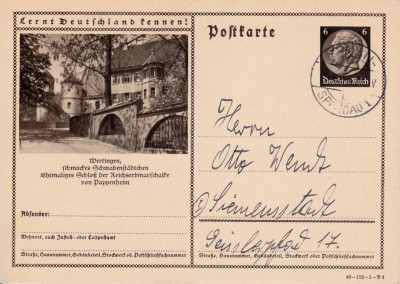 Lernt Deutschland kennen!
Postkarte
6 6
Deutsches Reich
SPANDAU 1
Wertingen,
schmuckes Schwabenstädtchen
Ehemaliges Schloß der Reichserbmarschalke
von Pappenheim
Absender:
Wohnort, auch Zustell- oder Leitpostamt
Straße, Hausnummer, Gebäudeteil, Stockwerk od. Postschließfachnummer
Herrn
Otto Wendt
Siemensstadt
17.
Straße, Hausnummer, Gebäudeteil, Stockwerk oder Postschließfachnummer